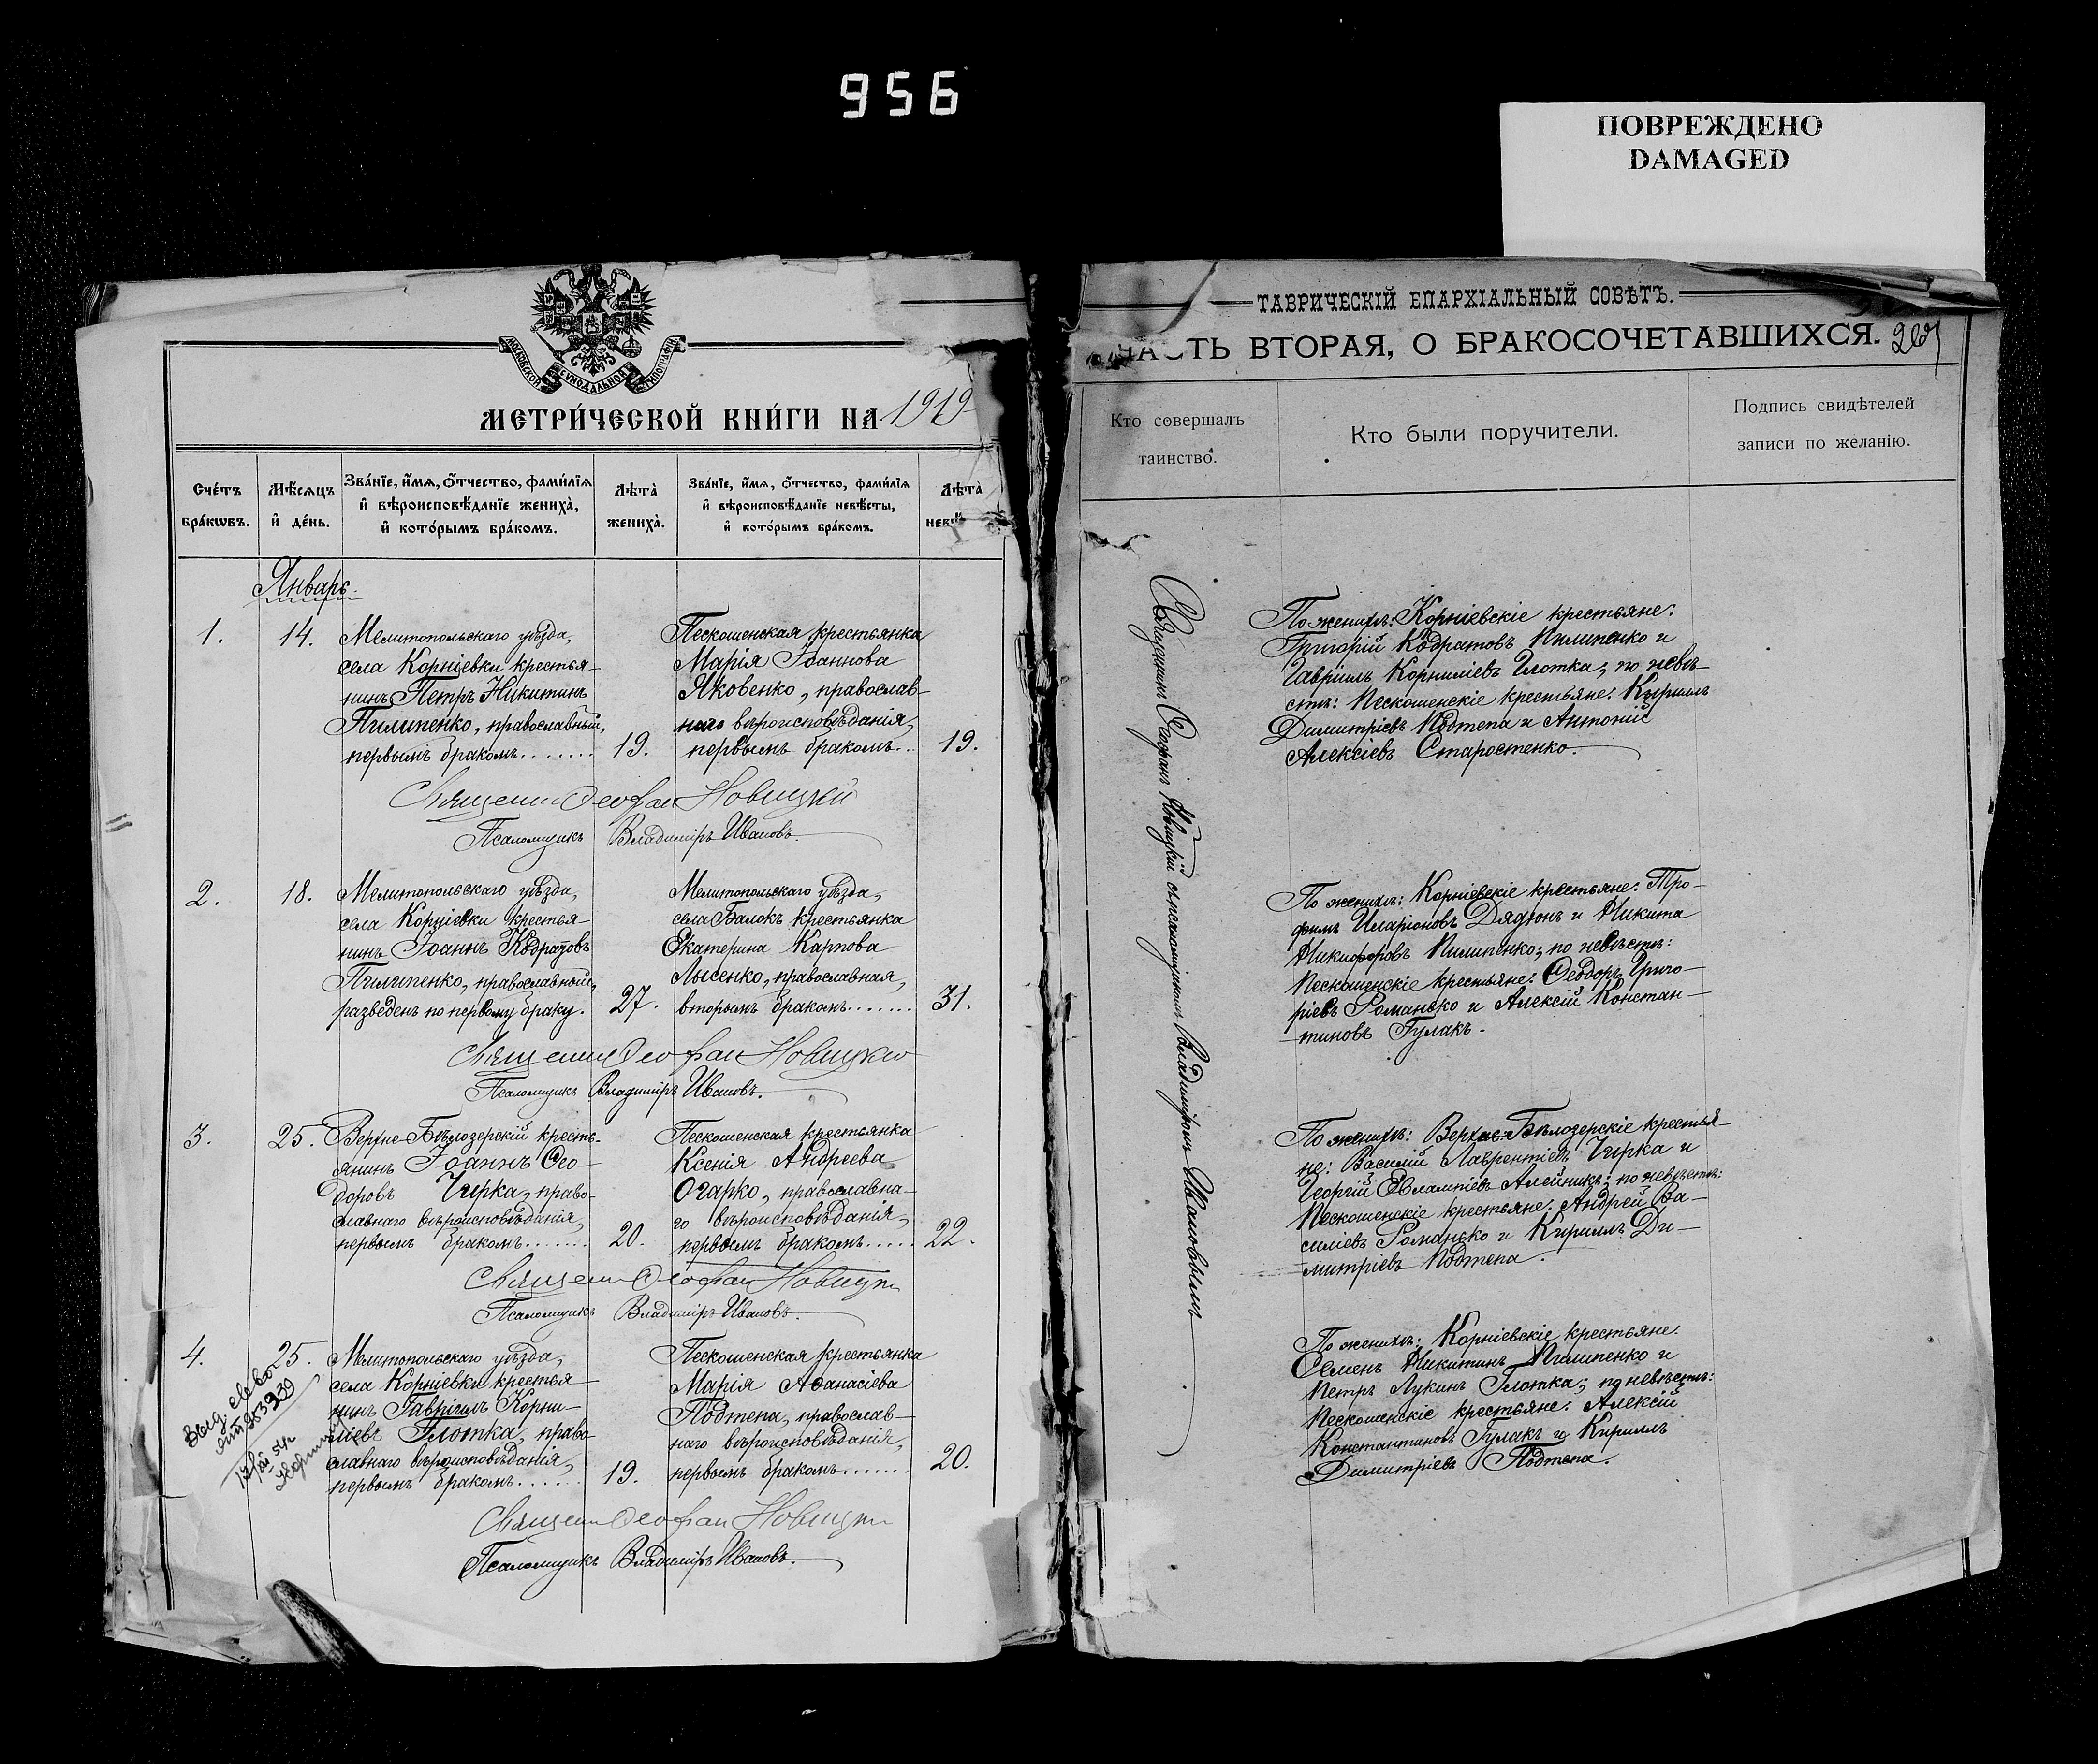 956
ПОВРЕЖДЕНО
DAMAGED
МОСКОВСКОЙ СѴНОДАЛЬНОЙ ТИПОГРАФІИ
МЕТРИ́ЧЕСКОЙ КНИ́ГИ НА 1919
Сче́тъ бра́кѡвъ.
Мѣ́сяцъ и҆ де́нь.
Зва́нїе, и҆́мѧ, ѻ҆́тчество, фами́лїѧ и҆ вѣроисповѣ́данїе жениха̀, и҆ кото́рымъ бра́комъ.
Лѣта̀ жениха̀.
Зва́нїе, и҆́мѧ, ѻ҆́тчество, фами́лїѧ и҆ вѣроисповѣ́данїе невѣ́сты, и҆ кото́рымъ бра́комъ.
Лѣта̀
Январь.
1.
14.
Мелитопольскаго уѣзда,
села Корніевки крестья-
нинъ Петръ Никитинъ
Пилипенко, православный,
первымъ бракомъ.......
19.
Пескошенская крестьянка
Марія Іоаннова
Яковенко, православ-
наго вѣроисповѣданія,
первымъ бракомъ...
19.
Священник Ѳеофан Новицкий
Псаломщикъ Владиміръ Ивановъ.
2.
18.
Мелитопольскаго уѣзда,
села Корніевки крестья-
нинъ Іоаннъ Кодратовъ
Пилипенко, православный,
разведенъ по первому браку.
27.
Мелитопольскаго уѣзда,
села Балокъ крестьянка
Екатерина Карпова
Лысенко, православная,
вторымъ бракомъ.......
31.
Священник Ѳеофан Новицкий
Псаломщикъ Владиміръ Ивановъ.
3.
25.
Верхне-Бѣлозерскій кресть-
янинъ Іоаннъ Ѳео-
доровъ Чирка, право-
славнаго вѣроисповѣданія,
первымъ бракомъ.......
20.
Пескошенская крестьянка
Ксенія Андреева
Огарко, православна-
го вѣроисповѣданія,
первымъ бракомъ.....
22.
Священник Ѳеофан Новицкий
Псаломщикъ Владиміръ Ивановъ.
4.
25.
Мелитопольскаго уѣзда,
села Корніевки крестья-
нинъ Гавріилъ Корни-
ліевъ Глотка, право-
славнаго вѣроисповѣданія,
первымъ бракомъ......
19.
Пескошенская крестьянка
Марія Аѳанасіева
Подтепа, православ-
наго вѣроисповѣданія,
первымъ бракомъ.......
20.
Священник Ѳеофан Новицкий
Псаломщикъ Владиміръ Ивановъ.
ТАВРИЧЕСКІЙ ЕПАРХІАЛЬНЫЙ СОВѢТЪ.
ЧАСТЬ ВТОРАЯ, О БРАКОСОЧЕТАВШИХСЯ.
Кто совершалъ таинство.
Кто были поручители.
Подпись свидѣтелей записи по желанію.
Священникъ Ѳеофанъ Новицкій съ псаломщикомъ Владиміромъ Ивановымъ
По женихѣ: Корніевскіе крестьяне:
Григорій Кодратовъ Пилипенко и
Гавріилъ Корниліевъ Глотка; по невѣ-
стѣ: Пескошенскіе крестьяне: Кириллъ
Димитріевъ Подтепа и Антоній
Алексіевъ Старостенко.
По женихѣ: Корніевскіе крестьяне: Тро-
фимъ Иларіоновъ Дядюнъ и Никита
Никифоровъ Пилипенко; по невѣстѣ:
Пескошенскіе крестьяне: Ѳеодоръ Григо-
ріевъ Романько и Алексій Констан-
тиновъ Гулакъ.
По женихѣ: Верхне-Бѣлозерскіе крестья-
не: Василій Лаврентіевъ Чирка и
Георгій Евлампіевъ Алейникъ; по невѣстѣ:
Пескошенскіе крестьяне: Андрей Ва-
силіевъ Романько и Кириллъ Ди-
митріевъ Подтепа.
По женихѣ: Корніевскіе крестьяне:
Семенъ Никитинъ Пилипенко и
Петръ Лукинъ Глотка; по невѣстѣ:
Пескошенскіе крестьяне: Алексій
Константиновъ Гулакъ и Кириллъ
Димитріевъ Подтепа.